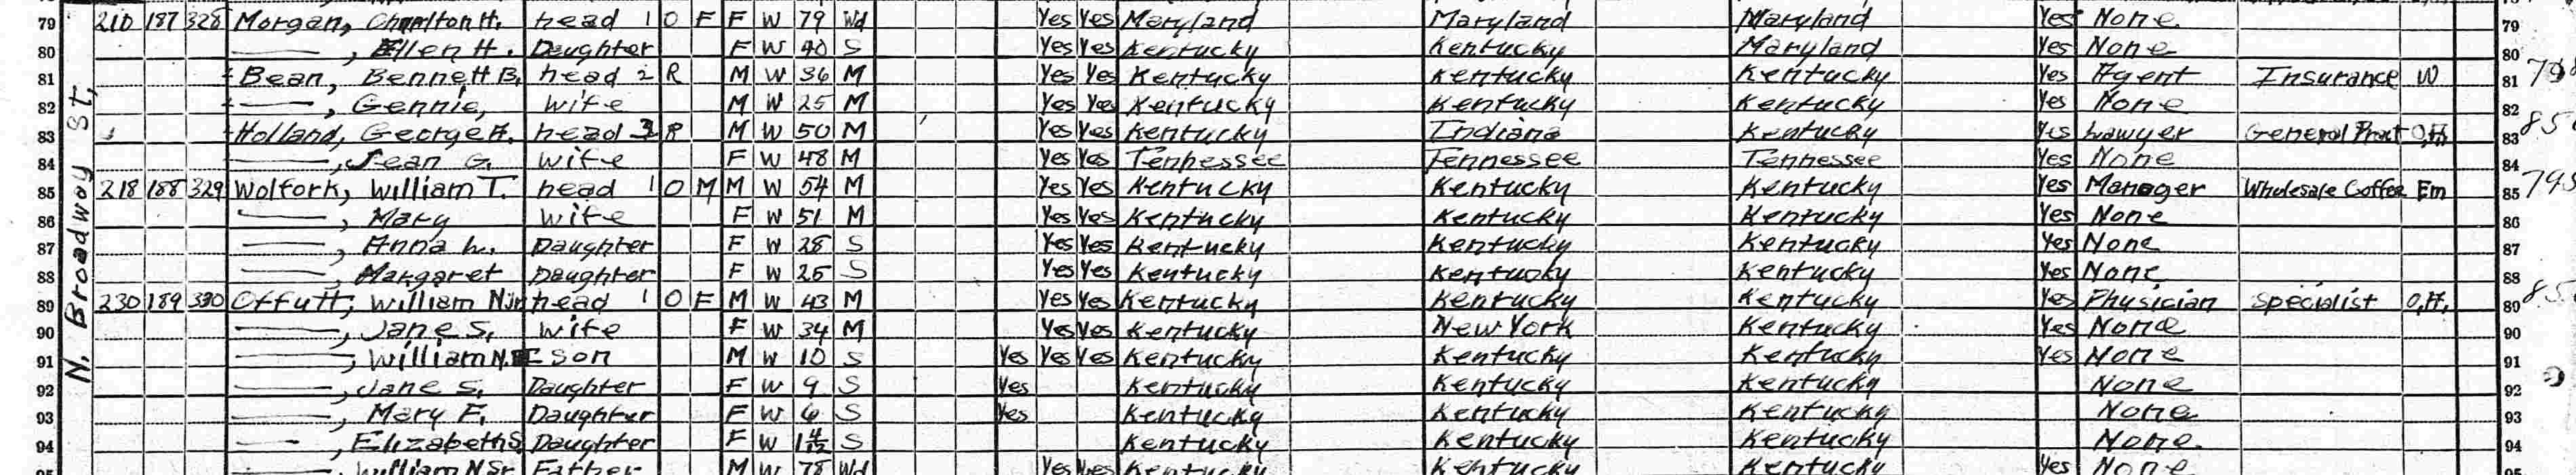 N. Broadway St,
79 210 187 328 Morgan, Charlton H. head 1 O F F W 79 Wd Yes Yes Maryland Maryland Maryland Yes None 79
80 —, Ellen H. Daughter F W 40 S Yes Yes Kentucky Kentucky Maryland Yes None 80
81 Bean, Bennett B. head 2 R M W 36 M Yes Yes Kentucky Kentucky Kentucky Yes Agent Insurance W 81
82 —, Gennie, wife M W 25 M Yes Yes Kentucky Kentucky Kentucky Yes None 82
83 Holland, George F. head 3 R M W 50 M Yes Yes Kentucky Indiana Kentucky Yes Lawyer General Pract 83
84 —, Jean G. wife F W 48 M Yes Yes Tennessee Tennessee Tennessee Yes None 84
85 218 188 329 Wolfork, William T. head 1 O M M W 54 M Yes Yes Kentucky Kentucky Kentucky Yes Manager Wholesale Coffee Em 85
86 —, Mary wife F W 51 M Yes Yes Kentucky Kentucky Kentucky Yes None 86
87 —, Anna L. Daughter F W 28 S Yes Yes Kentucky Kentucky Kentucky Yes None 87
88 —, Margaret Daughter F W 25 S Yes Yes Kentucky Kentucky Kentucky Yes None 88
89 230 189 330 Offutt, William N Jr. head 1 O F M W 43 M Yes Yes Kentucky Kentucky Kentucky Yes Physician Specialist 89
90 —, Jane S. wife F W 34 M Yes Yes Kentucky New York Kentucky Yes None 90
91 —, William N. son M W 10 S Yes Yes Yes Kentucky Kentucky Kentucky Yes None 91
92 —, Jane S. Daughter F W 9 S Yes Kentucky Kentucky Kentucky None 92
93 —, Mary F. Daughter F W 6 S Yes Kentucky Kentucky Kentucky None 93
94 —, Elizabeth S. Daughter F W S Kentucky Kentucky Kentucky None. 94
—, William N Sr. Father M W 78 Wd Yes Yes Kentucky Kentucky Kentucky Yes None